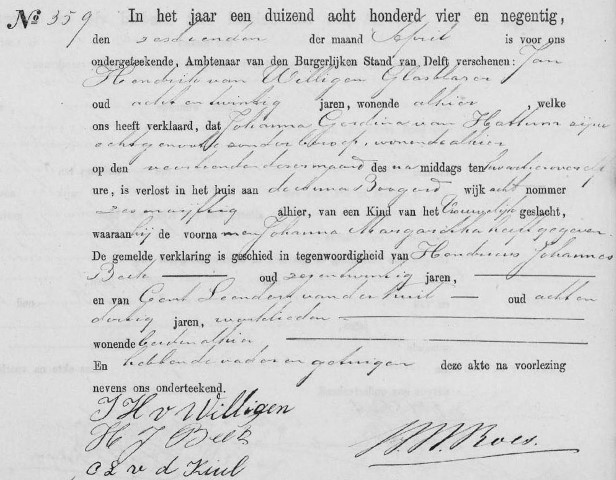 No 359 In het jaar een duizend acht honderd vier en negentig,
den zestienden der maand April is voor ons
ondergeteekende, Ambtenaar van den Burgerlijken Stand van Delft verschenen: Jan
Hendrik van Willigen Glasblazer
oud acht en twintig jaren, wonende alhier, welke
ons heeft verklaard, dat Johanna Gerdina van Hattum zijne
echtgenoote zonder beroep, wonende alhier
op den veertienden dezer maand des na middags ten kwartier over elf
ure, is verlost in het huis aan de Anna Boogerd wijk acht nommer
alhier, van een Kind van het Vrouwelijk geslacht,
waaraan hij de voorna men Johanna Margaretha heeft gegeven.
De gemelde verklaring is geschied in tegenwoordigheid van Hendricus Johannes
Beek oud zegentwintig jaren,
en van Gerrit Leendert van der Kuil oud acht en
dertig jaren, werklieden
wonende beiden alhier
En hebben de vader en getuigen deze akte na voorlezing
nevens ons onderteekend.
J H v Willigen
H J Beek
G L v d Kuil